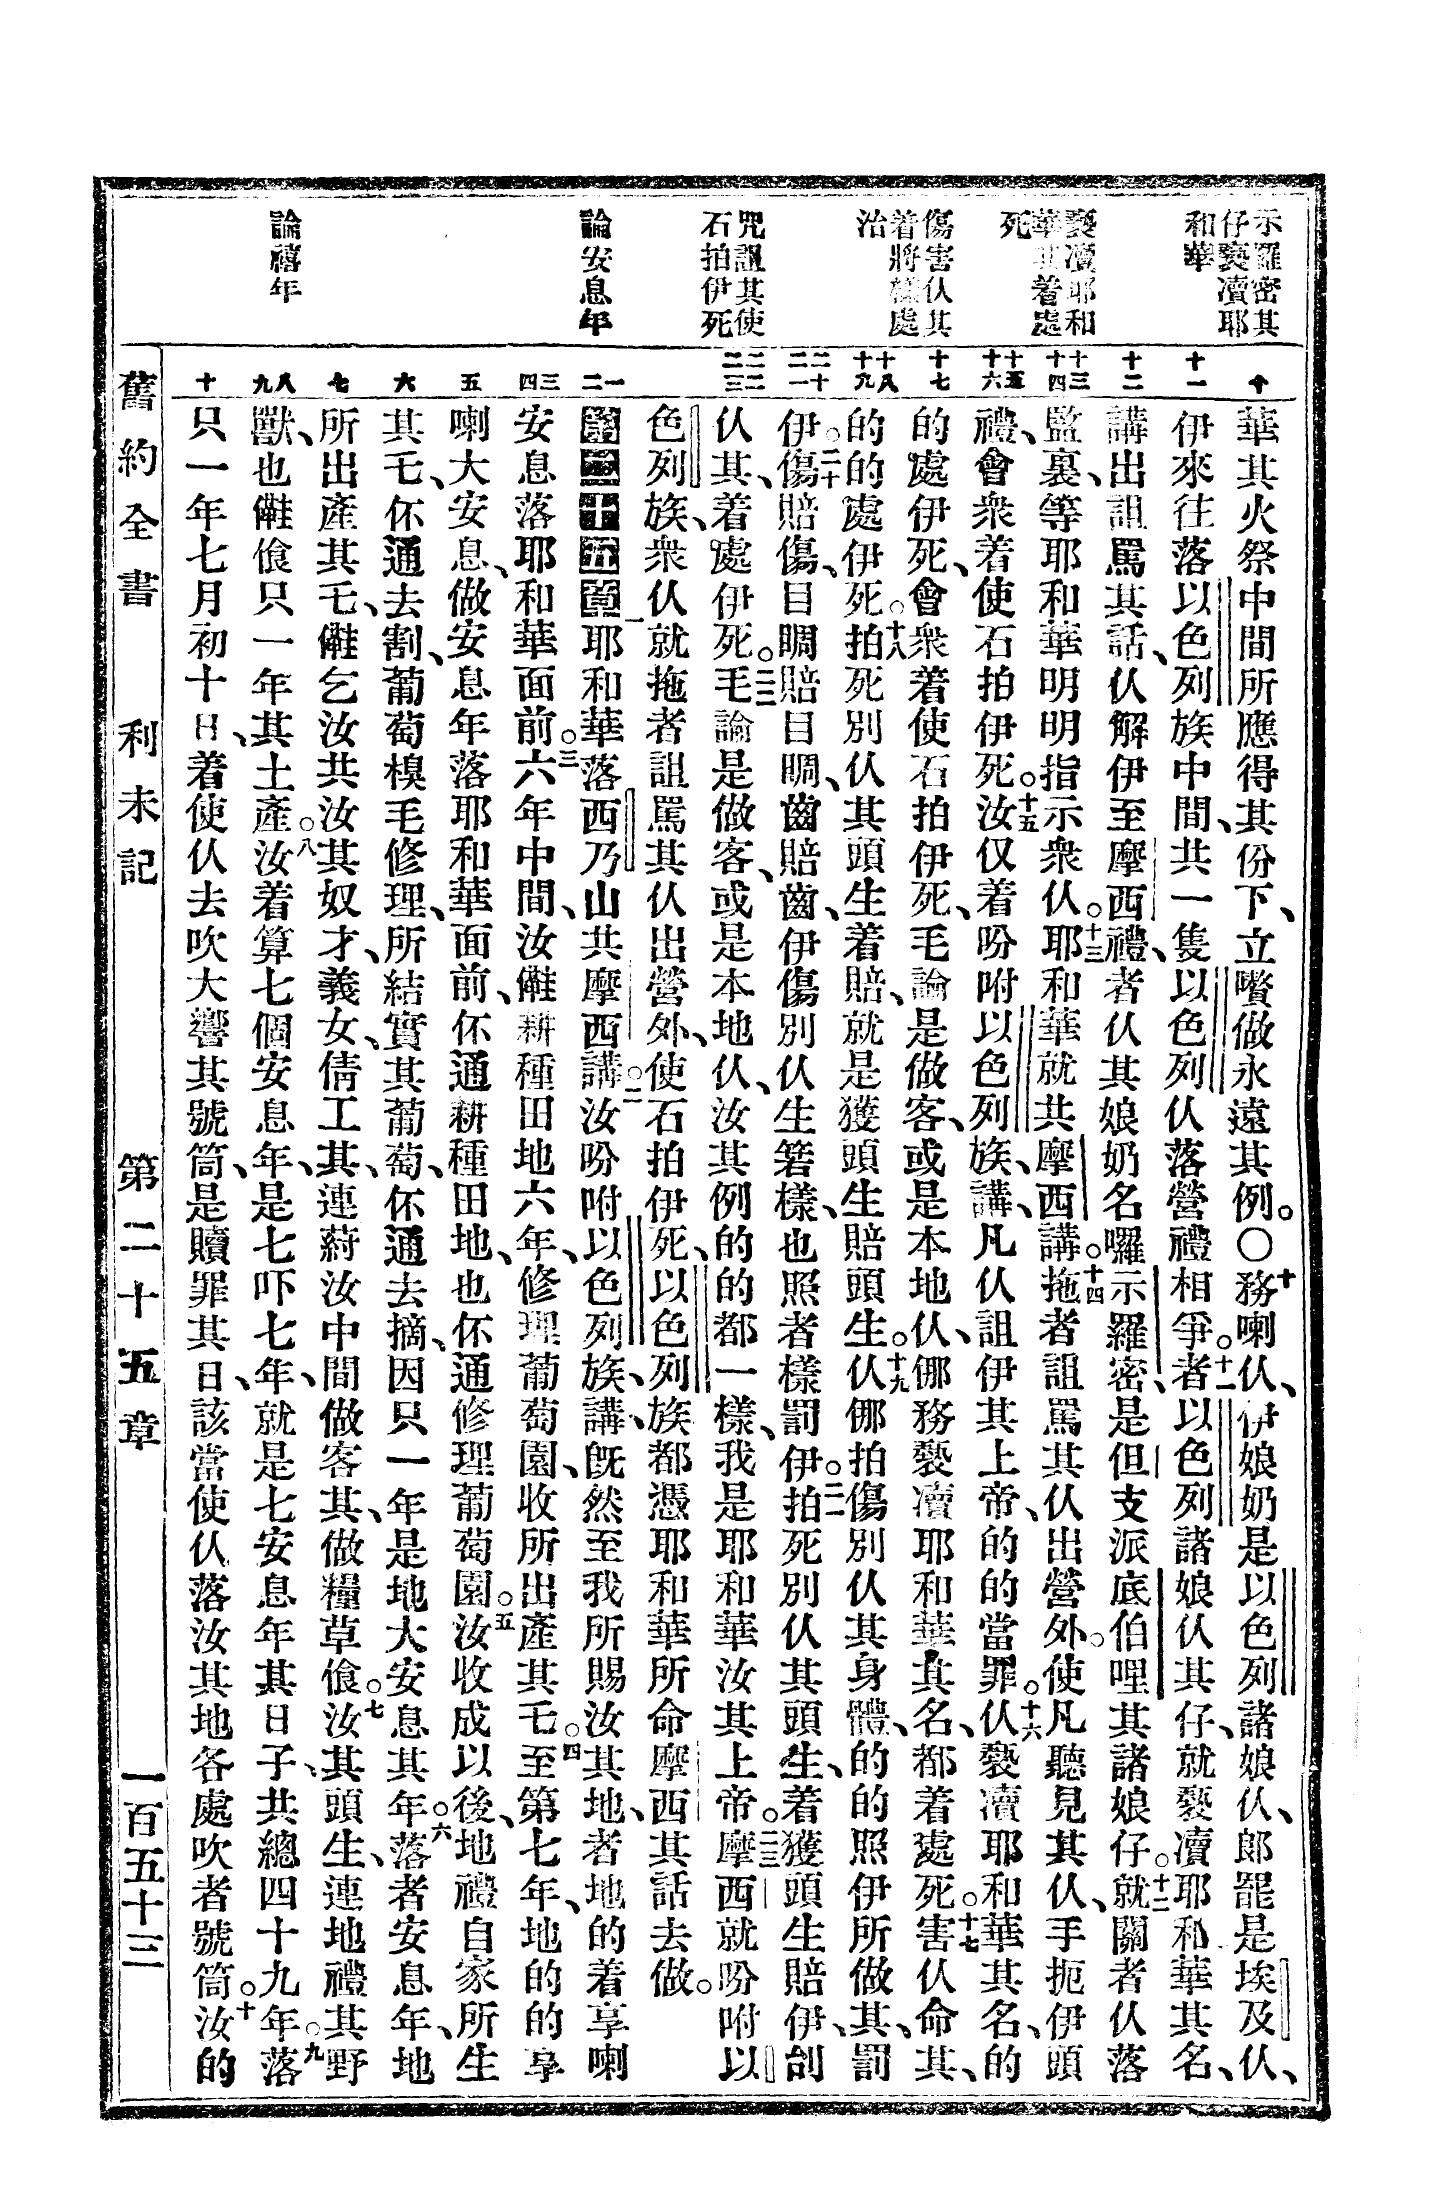 示羅密其
仔褻瀆耶
和華
褻瀆耶和
華其着處
死
傷害仫其
着將樣處
治
咒詛其使
石拍伊死
論安息年
論禧年
十
十一
十二
十三
十四
十五
十六
十七
十八
十九
二十
二一
二二
二三
一
二
三
四
五
六
七
八
九
十
華其火祭中間所應得其份下、立嚽做永遠其例。〇十務喇仫、伊娘奶是以色列諸娘仫、郎罷是埃及仫、
伊來往落以色列族中間、共一隻以色列仫落營禮相爭。十一者以色列諸娘仫其仔、就褻瀆耶和華其名、
講出詛罵其話、仫解伊至摩西禮、者仫其娘奶名囉示羅密、是但支派底伯哩其諸娘仔。十二就關者仫落
監裏、等耶和華明明指示衆仫。十三耶和華就共摩西講。十四拖者詛罵其仫出營外。使凡聽見其仫、手扼伊頭
禮、會衆着使石拍伊死。十五汝仅着吩咐以色列族、講、凡仫詛伊其上帝、的的當罪。十六仫褻瀆耶和華其名、的
的處伊死、會衆着使石拍伊死、毛論是做客、或是本地仫、㑚務褻瀆耶和華其名、都着處死。十七害仫命其、
的的處伊死。十八拍死別仫其頭生着賠、就是獲頭生賠頭生。十九仫㑚拍傷別仫其身體、的的照伊所做其、罰
伊。二十傷賠傷、目睭賠目睭、齒賠齒、伊傷別仫生箬樣、也照者樣罰伊。二一拍死別仫其頭生、着獲頭生賠伊、刣
仫其、着處伊死。二二毛論是做客、或是本地仫、汝其例的的都一樣、我是耶和華汝其上帝。二三摩西就吩咐以
色列族、衆仫就拖者詛罵其仫出營外、使石拍伊死、以色列族都憑耶和華所命摩西其話去做。
第二十五章一耶和華落西乃山共摩西講。二汝吩咐以色列族、講、旣然至我所賜汝其地、者地的着享喇
安息落耶和華面前。三六年中間、汝雝耕種田地六年、修理葡萄園、收所出產其乇。四至第七年、地的的享
喇大安息、做安息年落耶和華面前、伓通耕種田地、也伓通修理葡萄園。五汝收成以後、地禮自家所生
其乇、伓通去割、葡萄模毛修理、所結實其葡萄、伓通去摘、因只一年是地大安息其年。六落者安息年、地
所出產其乇、雝乞汝共汝其奴才、義女、倩工其、連蒞汝中間做客其、做糧草飡。七汝其頭生、連地禮其野
獸、也雝飡只一年其土產。八汝着算七個安息年、是七吓七年、就是七安息年其日子、共總四十九年。九落
只一年七月初十日、着使仫去吹大響其號筒、是贖罪其日、該當使仫落汝其地各處吹者號筒。十汝的
舊約全書 利未記 第二十五章 一百五十三